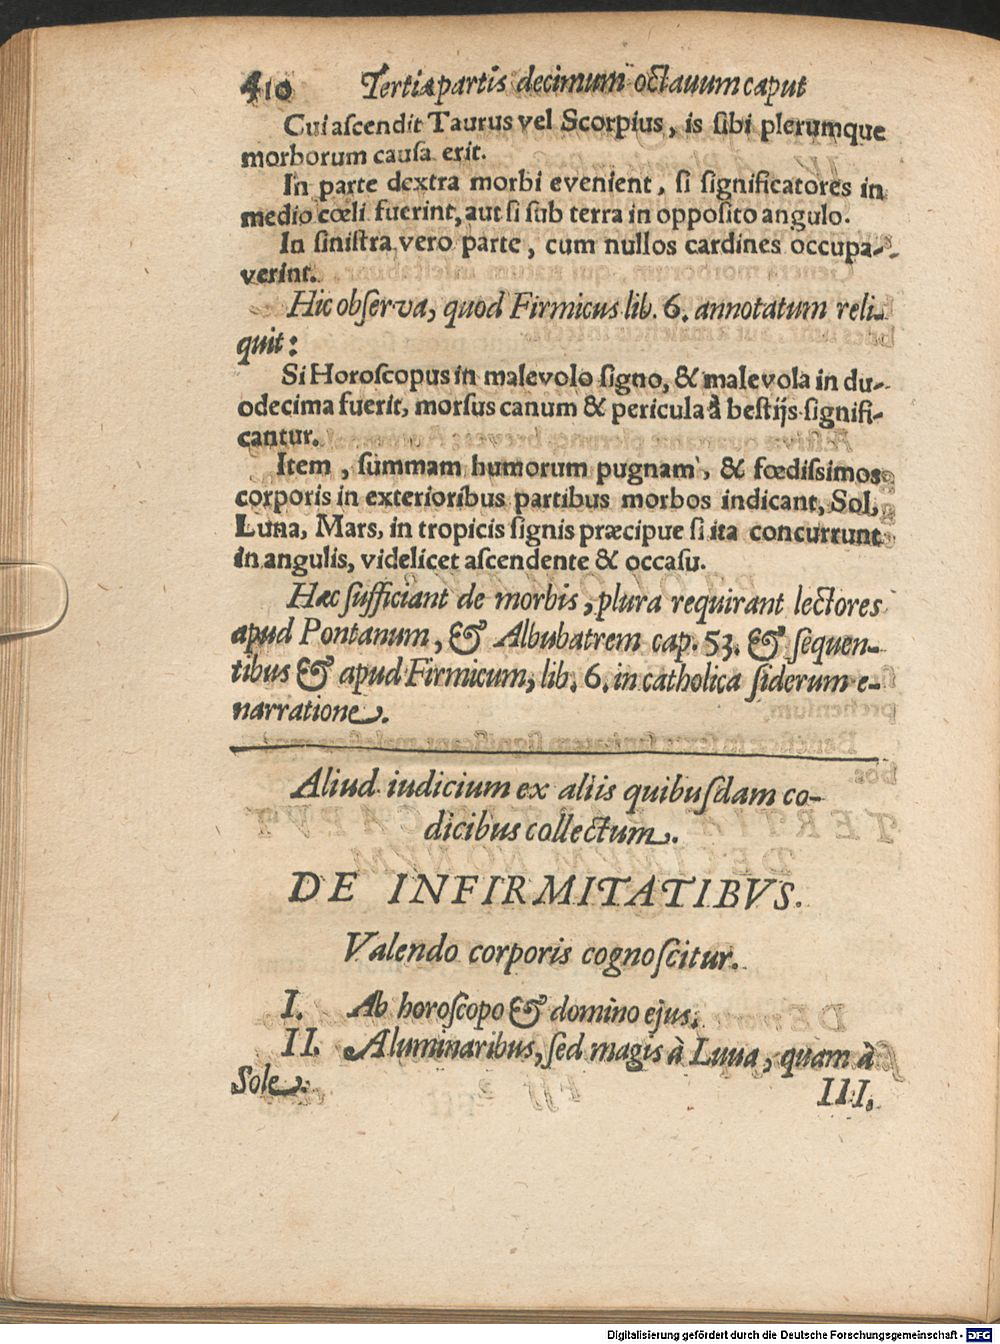 410 Tertiæ partis decimum octauum caput
Cui ascendit Taurus vel Scorpius, is sibi plerumque
morborum causa erit.
In parte dextra morbi evenient, si significatores in
medio cœli fuerint, aut si sub terra in opposito angulo.
In sinistra vero parte, cum nullos cardines occupa-
verint.
Hic observa, quod Firmicus lib. 6. annotatum reli-
quit:
Si Horoscopus in malevolo signo, & malevola in du-
odecima fuerit, morsus canum & pericula à bestijs signifi-
cantur.
Item, summam humorum pugnam, & fœdissimos
corporis in exterioribus partibus morbos indicant, Sol,
Luna, Mars, in tropicis signis præcipue si ita concurrunt
in angulis, videlicet ascendente & occasu.
Hæc sufficiant de morbis, plura requirant lectores
apud Pontanum, & Albubatrem cap. 53. & sequen-
tibus & apud Firmicum, lib. 6. in catholica siderum e-
narratione.
Aliud iudicium ex aliis quibusdam co-
dicibus collectum.
DE INFIRMITATIBVS.
Valendo corporis cognoscitur.
I. Ab horoscopo & domino ejus.
II. A luminaribus, sed magis à Luua, quam à
Sole.
III.
Digitalisierung gefördert durch die Deutsche Forschungsgemeinschaft - DFG